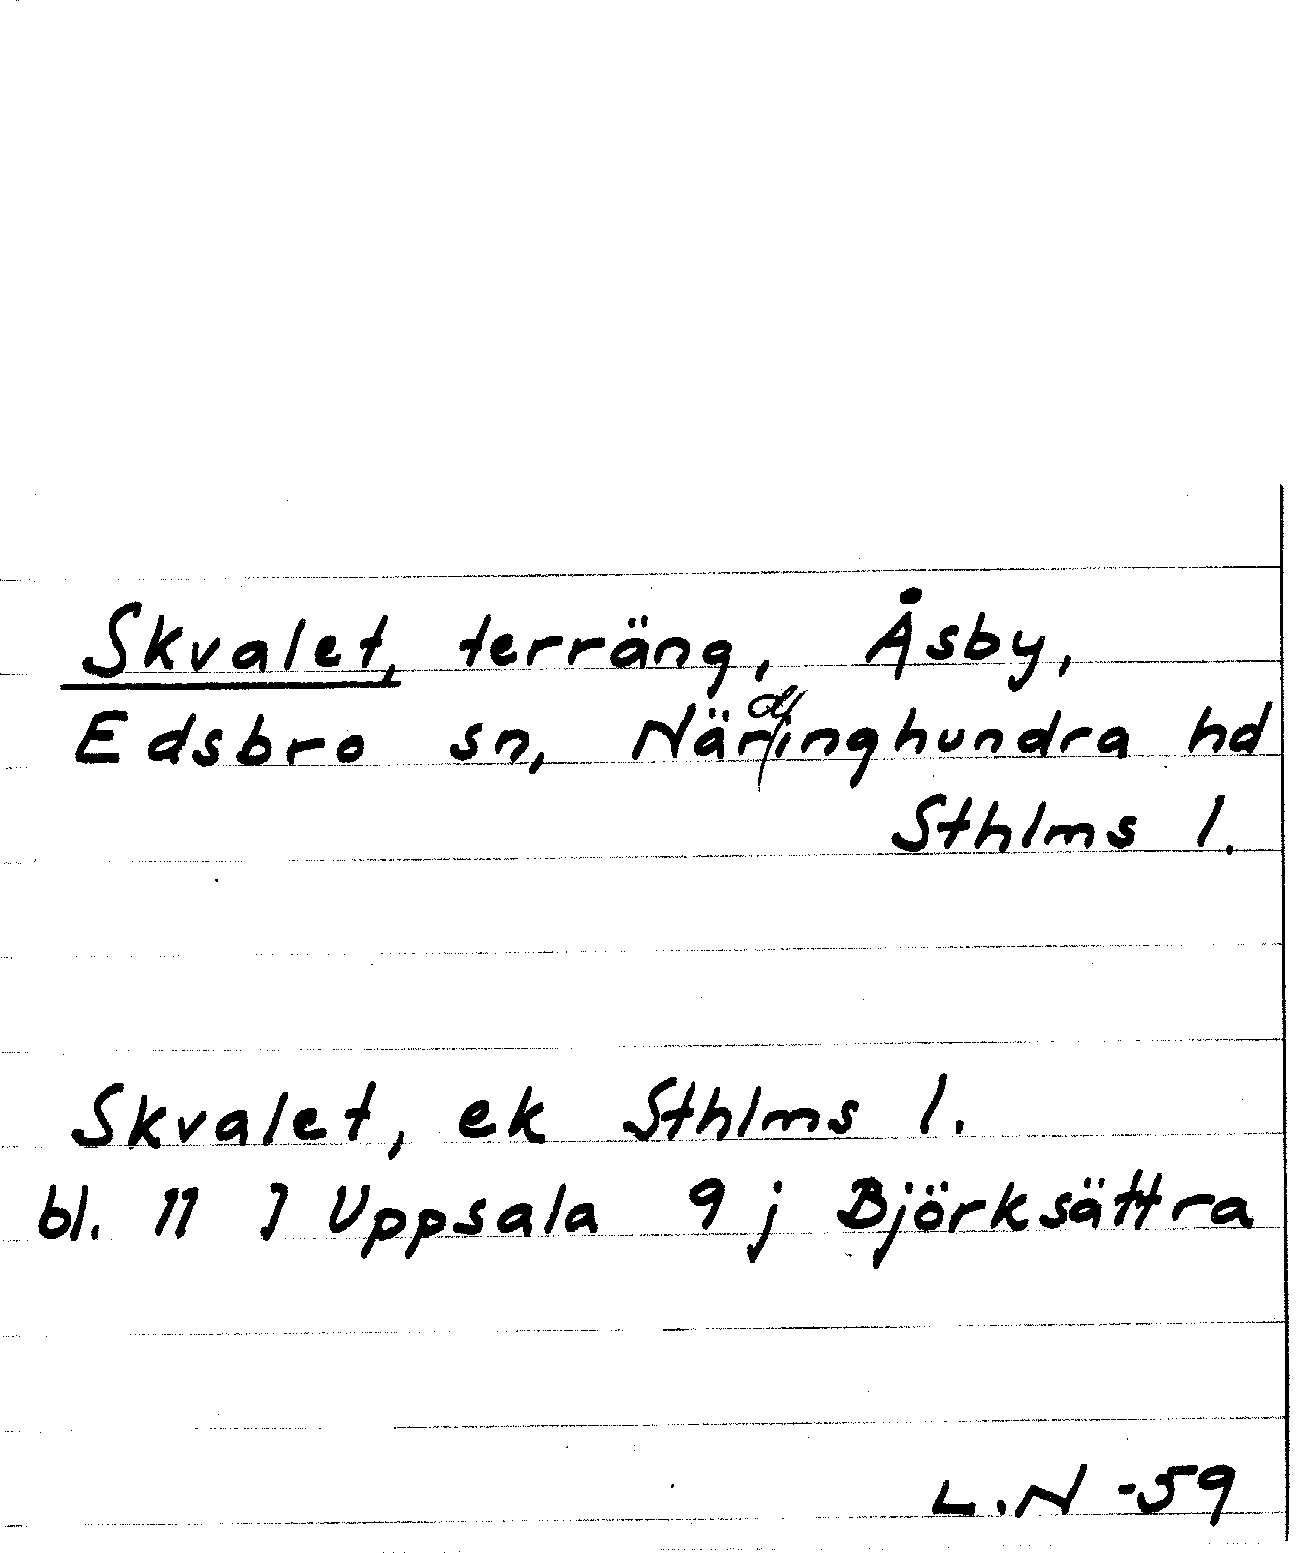 Skvalet, terräng, Åsby,
Edsbro sn, Närdinghundra hd
Sthlms l.
Skvalet, ek Sthlms l.
bl. 11 I Uppsala 9 j Björksättra
L.N -59